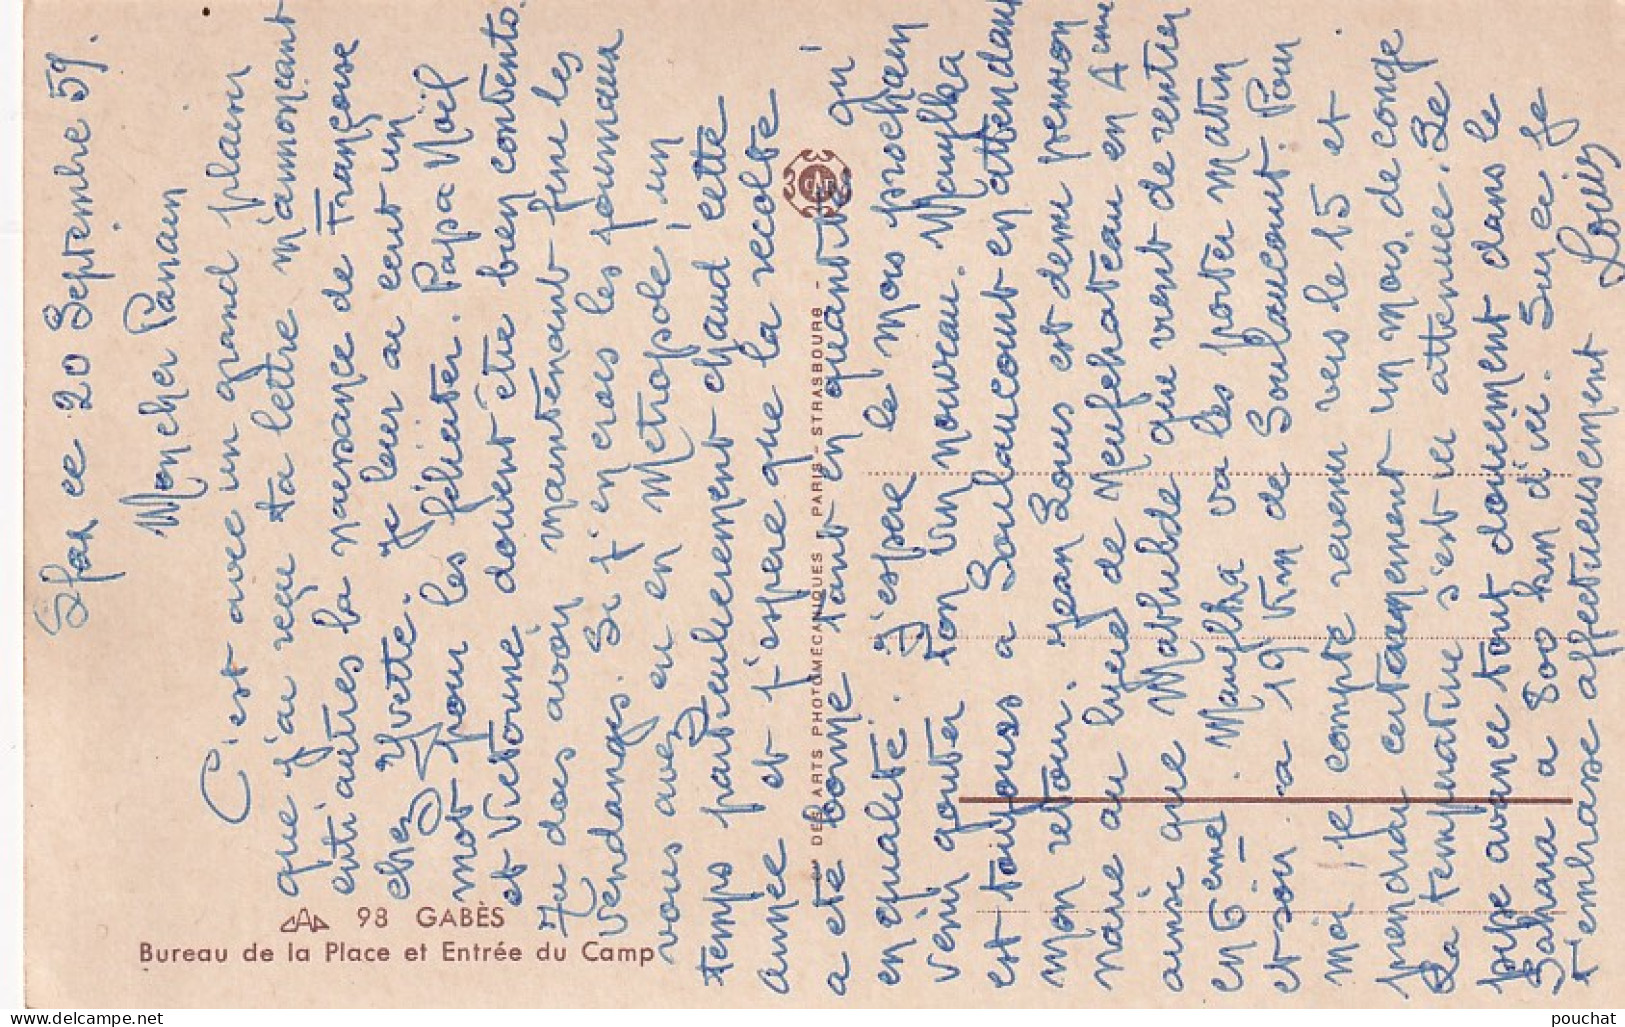 Sfax ce 20 Septembre 59.
Mon cher Parrain
C'est avec un grand plaisir
que j'ai reçu ta lettre m'annoncant
entr'autres la naissance de Françoise
chez Yvette. Je leur ai ecrit un
mot pour les féliciter. Papa Noël
et Victorine doivent être bien contents.
Tu dois avoir maintenant fini les
vendanges. Si j'en crois les journaux
vous avez eu en Metropole, un
temps particulierement chaud cette
année et j'espere que la recolte
a ete bonne tant en quantité qu'
en qualité. J'espere le mois prochain
venir gouter ton vin nouveau.
est toujours a Soulaucourt en attendant
mon retour. Jean Louis est demi pension
naire au lycée de Neufchateau en 4ème
ainsi que Mathilde que vient de rentrer
en 6ème. va les porter matin
et soir a 19 Km de Soulaucourt. Pour
moi, je compte revenir vers le 15 et
prendrai certainement un mois de conge
La temperature s'est ici attenuee. Le
avance tout doucement dans le
Sahara a 800 km d'ici. Sur ce je
t'embrasse affectueusement Louis
98 GABÈS
Bureau de la Place et Entrée du Camp
DES ARTS PHOTOMÉCANIQUES PARIS - STRASBOURG -
CAP
pouchat
www.delcampe.net